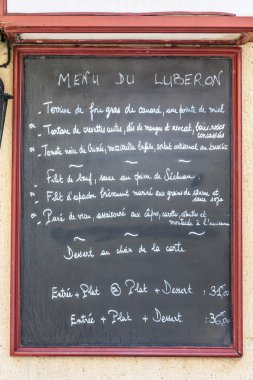 MENU DU LUBERON
- Terrine de foie gras de canard, une pointe de miel
ou
- Tartare de crevettes cuites, dés de mangue et avocat, baies roses
concassées
ou
- Tomate noire de Crimée, mozzarella bufala, sorbet artisanal au basilic
~
- Filet de bœuf, sauce au poivre de Sichuan
ou
- Filet d'espadon brièvement mariné aux graines de sésame et
sauce soja
ou
- Pavé de veau, assaisonné aux câpres, carottes, et
moutarde à l'ancienne
~
Dessert au choix de la carte
Entrée + Plat ou Plat + Dessert : 31,00
Entrée + Plat + Dessert : 36,00